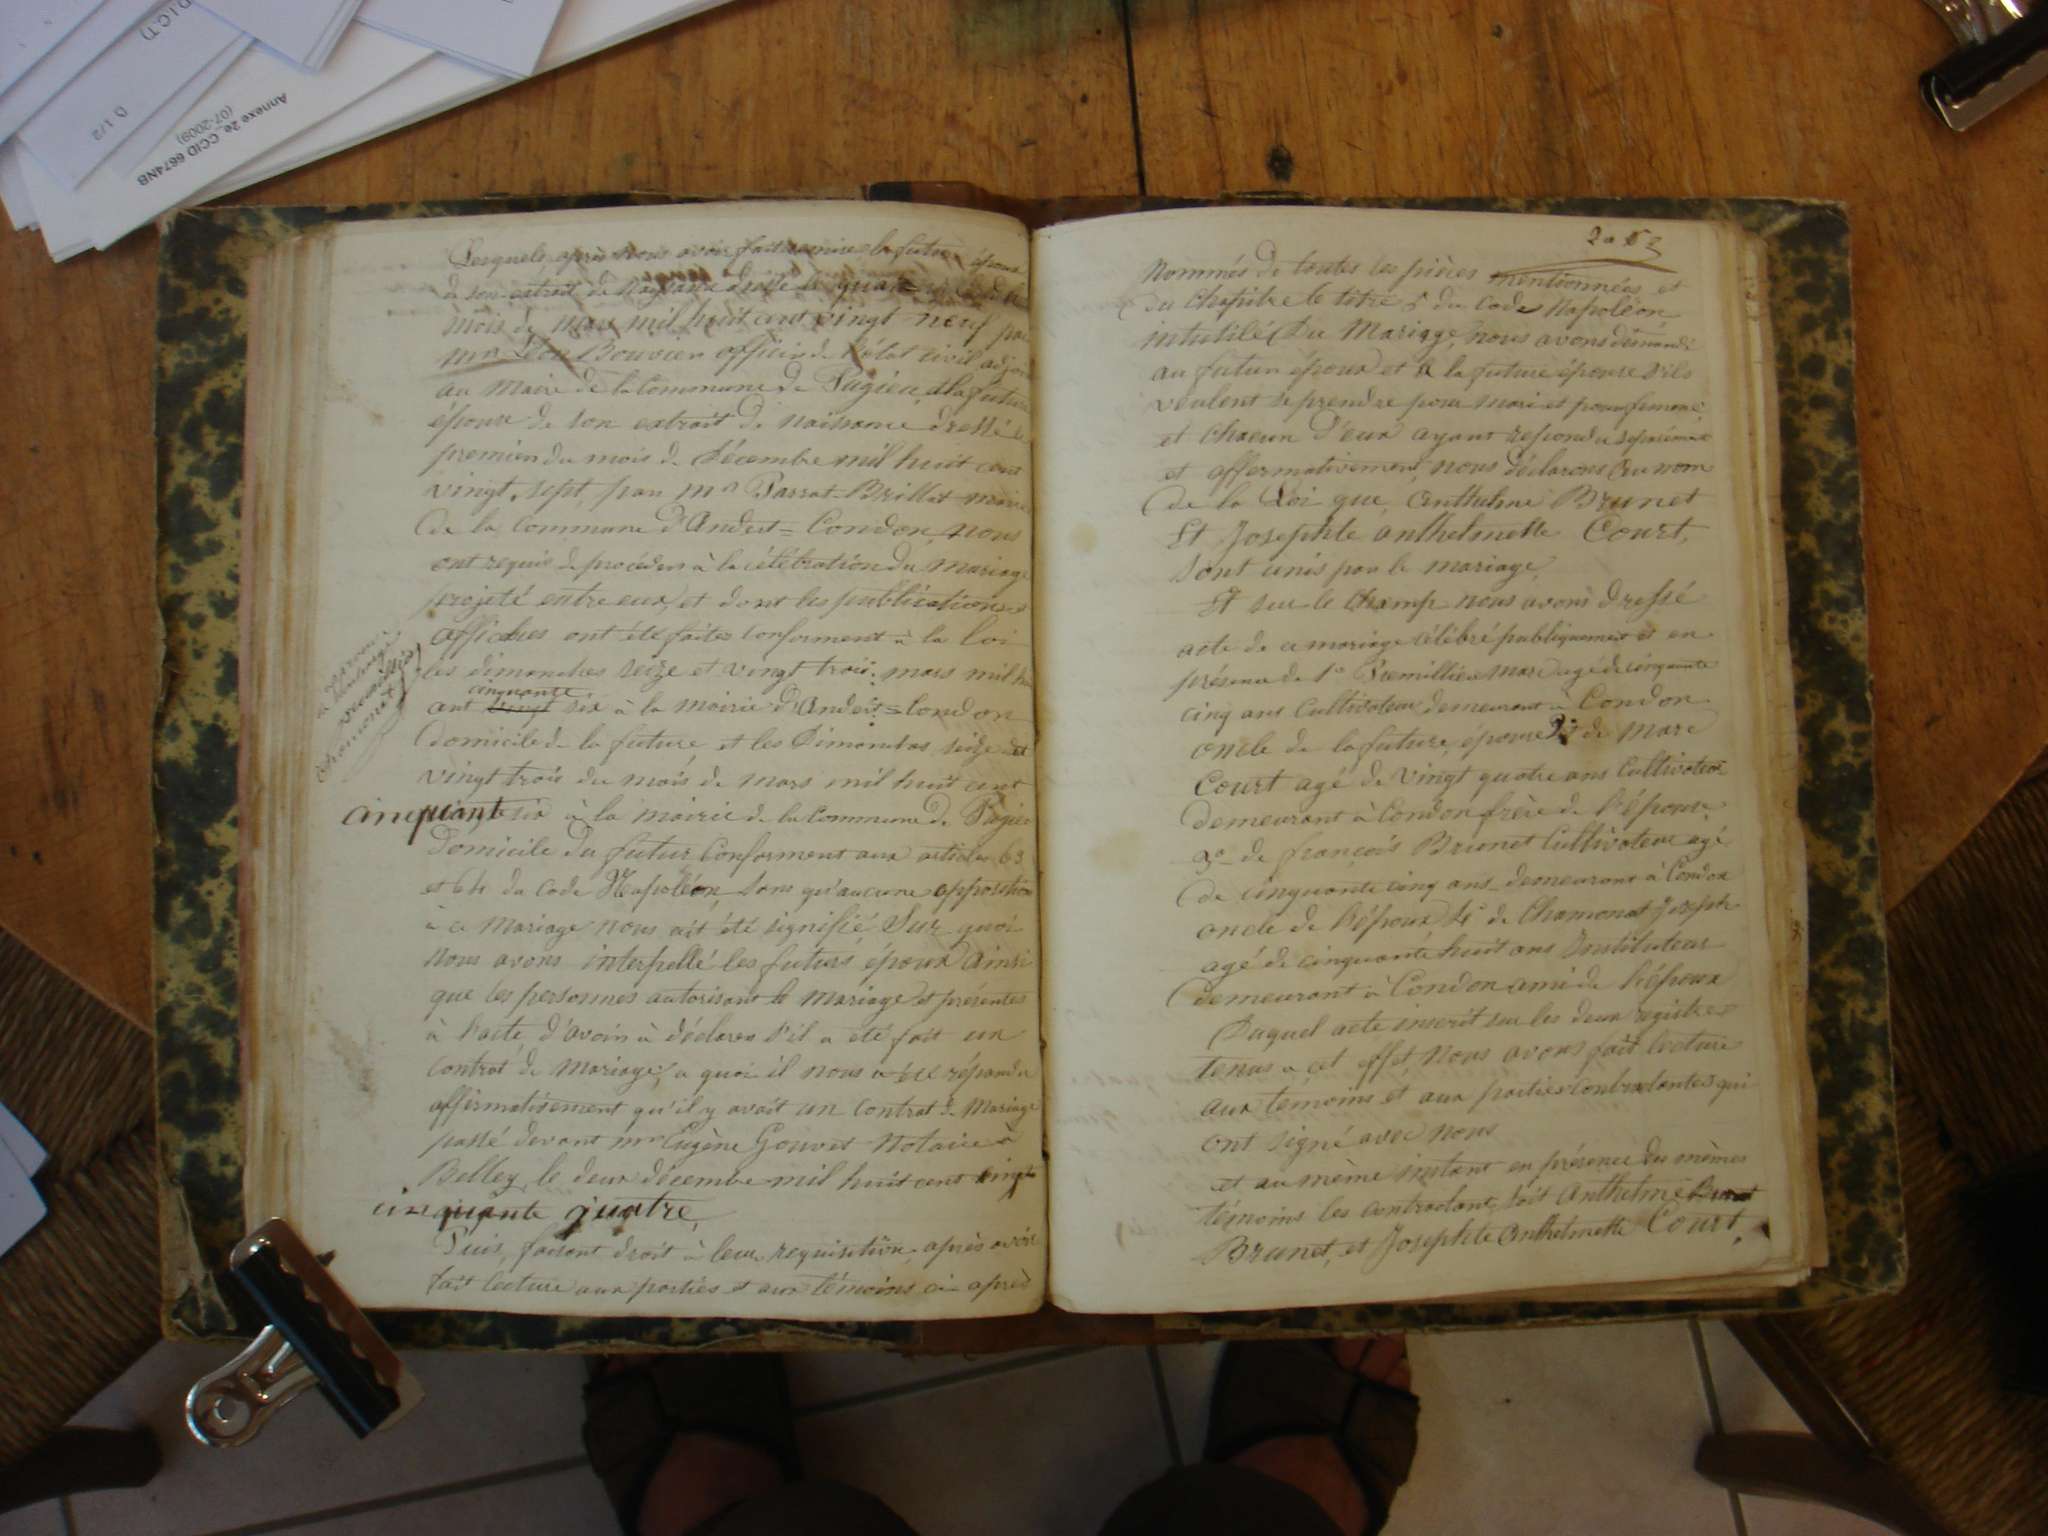 D.I.C.T)
D 1/2
Annexe 2e_CCID 6674NB
(07-2009)
Lesquels après nous avoir fait remise le futur époux
de son extrait de naissance dressé le
mois de mars mil huit cent vingt neuf par
mr Léon Bouvier officier de l'état civil adjoint
au Maire de la Commune de Pugieu, et la future
épouse de son extrait de naissance dressé le
premier du mois de Décembre mil huit cent
vingt sept, par mr Parrat-Brillat maire
de la Commune d'Andert=Condon, nous
ont requis de procéder à la célébration du mariage
projeté entre eux, et dont les publications
affiches ont été faites conforment à la loi
les dimanches seize et vingt trois mars mil hu
cinquante
cent vingt six à la mairie d'Andert=Condon
domicile de la future et les Dimanches seize et
vingt trois du mois de mars mil huit cent
cinquante six à la mairie de la Commune de Pugieu
domicile du futur Conforment aux articles 63
et 64 du Code Napoléon, sans qu'aucune opposition
à ce mariage nous ait été signifié Sur quoi
nous avons interpellé les futurs époux ainsi
que les personnes autorisant le mariage et présentes
à l'acte, d'avoir à déclarer s'il a été fait un
contrat de mariage, a quoi il nous a été répondu
affirmativement qu'il y avait un contrat de Mariage
passé devant mr Eugène Gouvet Notaire à
Belley, le deux décembre mil huit cent vingt
cinquante quatre,
Puis, faisant droit à leur requisition, après avoir
fait lecture aux parties et aux témoins ci après
nommés de toutes les pièces mentionnées et
du Chapitre 6 titre 5 du Code Napoléon
intutilé (Du Mariage, nous avons demandé
au futur époux et à la future épouse s'ils
veulent se prendre pour mari et pour femme,
et chacun d'eux ayant repondu séparément
et affermativement, nous déclarons au nom
de la Loi que, Anthelme Brunet
Et Josephte anthelmette Court,
sont unis par le mariage,
Et sur le champ nous avons dressé
acte de ce mariage célébré publiquement et en
présence de 1° Premillieu Marc agé de cinquante
cinq ans Cultivateur demeurant à Condon
oncle de la future, épouse 2° de Marc
Court agé de vingt quatre ans Cultivateur
demeurant à Condon frère de l'épouse,
3° de françois Brunet Cultivateur agé
de cinquante cinq ans demeurant à Condon
oncle de l'époux 4° de Chamonat Joseph
agé de cinquante huit ans Instituteur
demeurant à Condon ami de l'époux
Duquel acte inscrit sur les deux registres
tenus a cet effet, Nous avons fait lecture
aux témoins et aux parties contractantes qui
ont signé avec nous
et au même instant en présence des mêmes
témoins les contractants, soit Anthelme Brunet
Brunet, et Josephte Anthelmette Court,